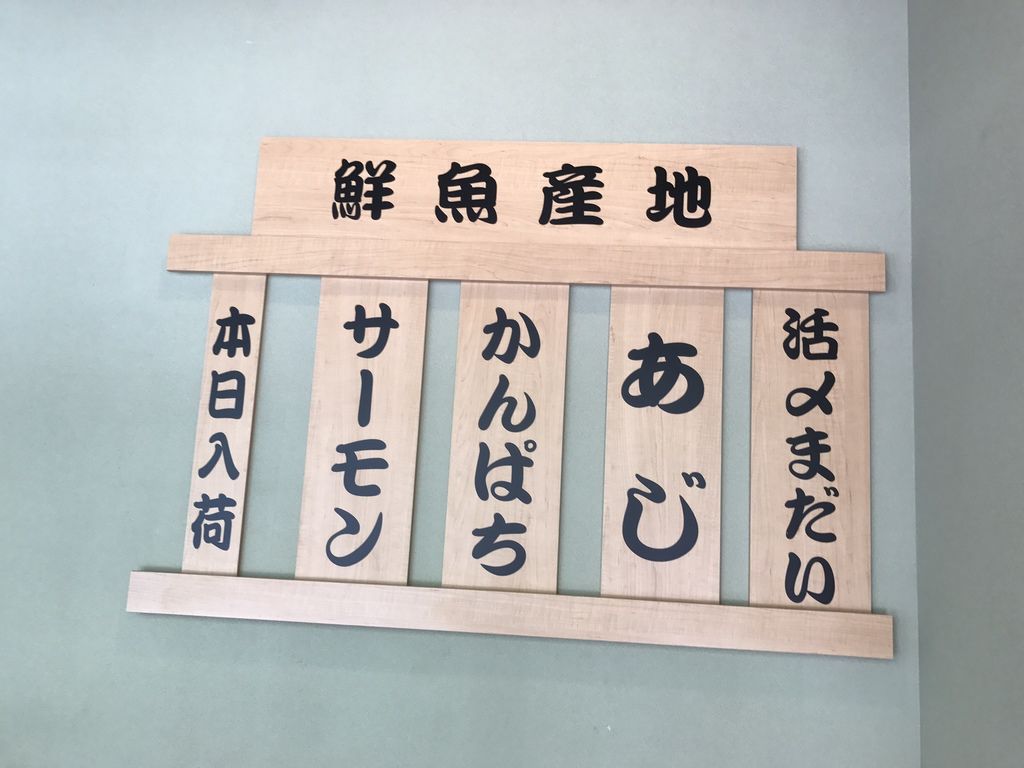 鮮魚産地
活〆まだい
あじ
かんぱち
サーモン
本日入荷